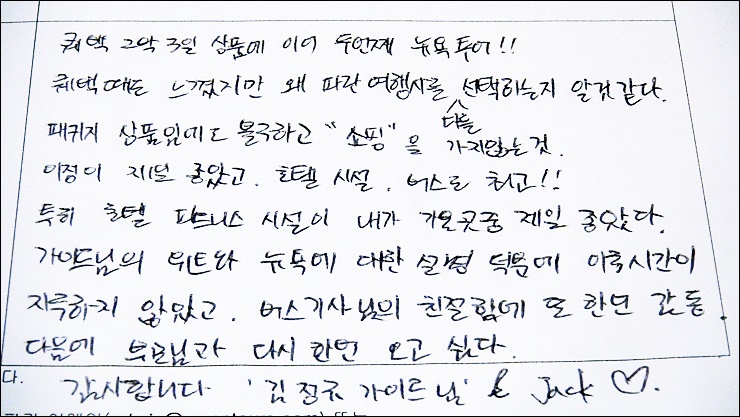 퀘백 2박 3일 상품에 이어 두번째 뉴욕투어!!
퀘백때도 느꼈지만 왜 파란여행사를 선택하는지 알것같다.
다들
패키지 상품임에도 불구하고 "쇼핑"을 가지않는것.
이점이 제일 좋았고. 호텔 시설. 버스도 최고!!
특히 호텔 피트니스 시설이 내가 가본곳중 제일 좋았다.
가이드님의 위트와 뉴욕에 대한 설명 덕분에 이동시간이
지루하지 않았고. 버스기사님의 친절함에 또 한번 감동.
다음에 부모님과 다시한번 오고 싶다.
다. 감사합니다 '김 가이드님' & Jack ♡.